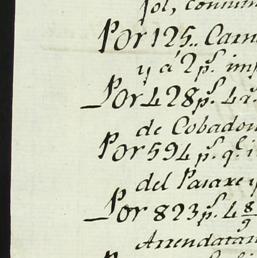 sol, conum
Por 125.. Cam
y á 2 p.s imp
Por 428 p.s 4 r.
de Cobadon
Por 594 p.s q.e i
del Paraxe y
Por 823 p.s 4 8/9
Arrendatar